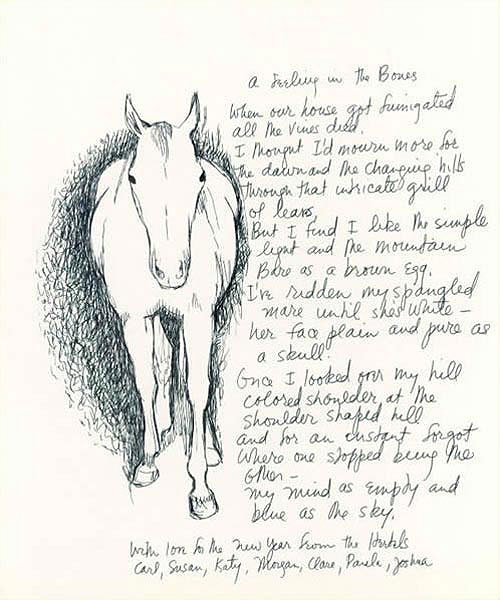 A Feeling in the Bones
When our house got fumigated
all the vines died.
I thought I'd mourn more for
the dawn and the changing hills
through that intricate grill
of leaves,
But I find I like the simple
light and the mountain
Bare as a brown egg.
I've ridden my spangled
mare until she's white –
her face plain and pure as
a skull.
Once I looked over my hill
colored shoulder at the
shoulder shaped hill
and for an instant forgot
where one stopped being the
other –
my mind as empty and
blue as the sky.
With love for the New Year from the Hertels
Carl, Susan, Katy, Morgan, Clare, Pamela, Joshua